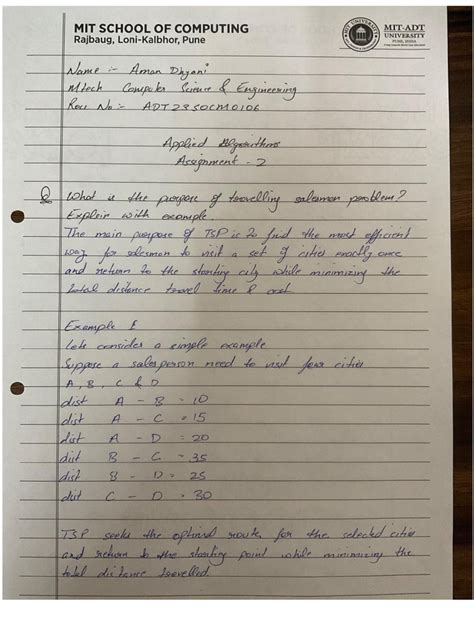 MIT SCHOOL OF COMPUTING
Rajbaug, Loni-Kalbhor, Pune
MIT-ADT
UNIVERSITY
PUNE, INDIA
Name :- Aman Dhyani
Mtech Computer Science & Engineering
Roll No :- ADT23SOCM0106
Applied Algorithms
Assignment - 2
Q What is the purpose of travelling salesman problem?
Explain with example.
The main purpose of TSP is to find the most efficient
way for salesman to visit a set of cities exactly once
and return to the starting city while minimizing the
total distance travel time & cost
Example
Lets consider a simple example
Suppose a salesperson need to visit four cities
A, B, C & D
dist A - B = 10
dist A - C = 15
dist A - D = 20
dist B - C = 35
dist B - D = 25
dist C - D = 30
TSP seeks the optimal route for the selected cities
and return to the starting point while minimizing the
total distance travelled.